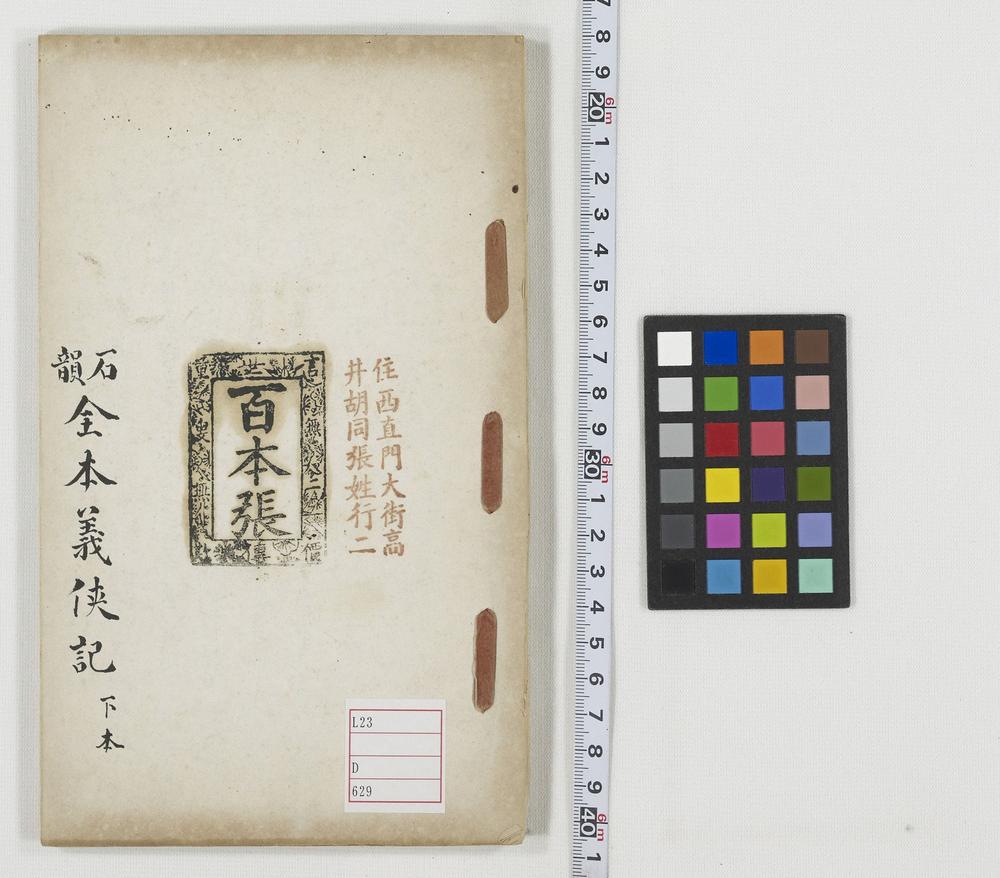 住西直門大街高
井胡同張姓行二
百本張
石韻
全本義俠記
下本
L23
D
629
7
8
9
20
6m
1
2
3
4
5
6
7
8
9
30
6m
1
2
3
4
5
6
7
8
9
40
6m
1